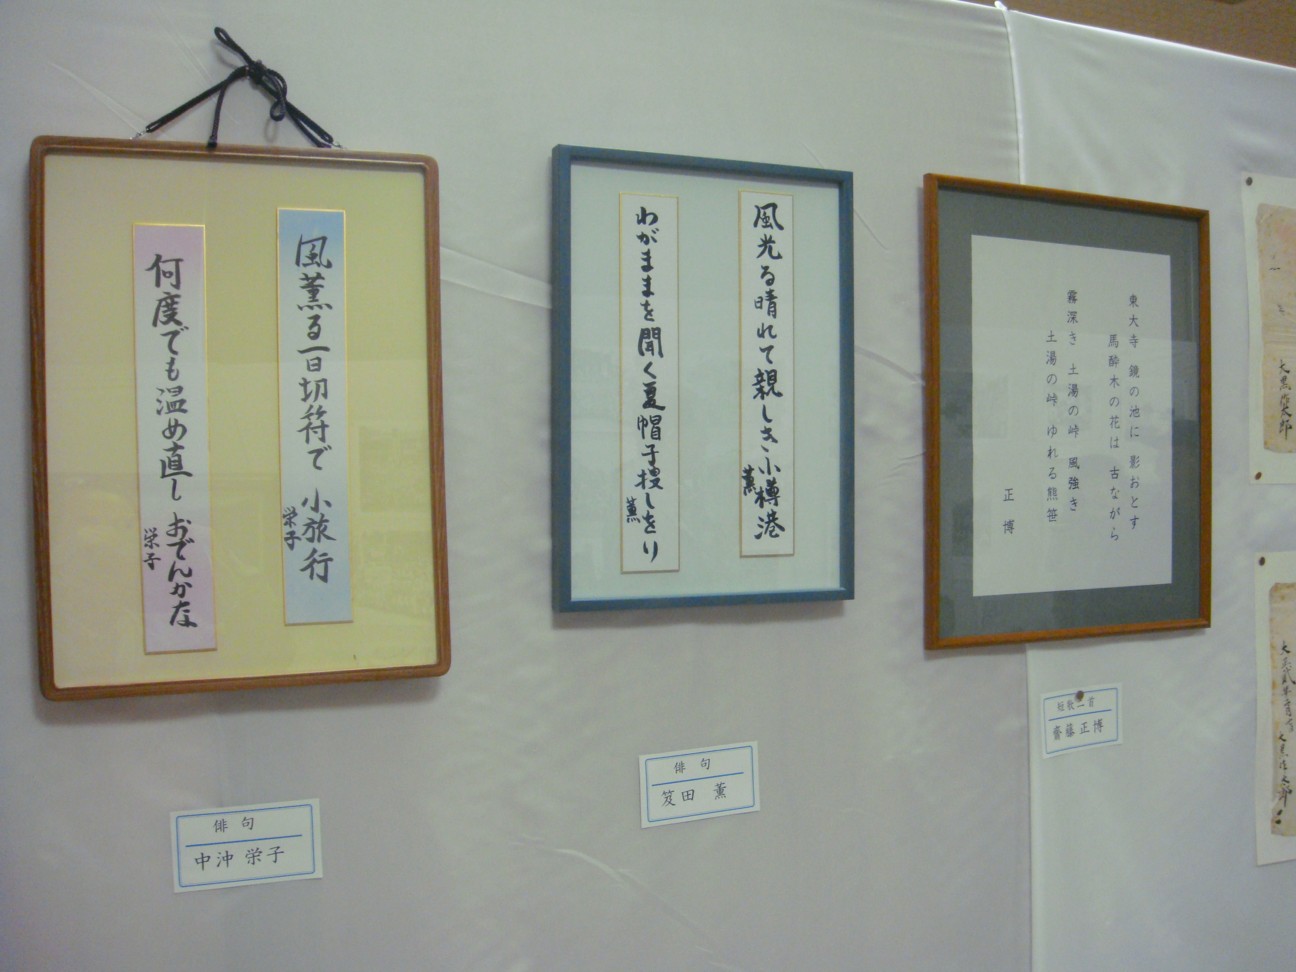 風薫る一日切符で 小旅行
栄子
何度でも温め直し おでんかな
栄子
俳句
中沖 栄子
風光る晴れて親しき小樽港
薫
わがままを聞く夏帽子捜しをり
薫
俳句
笈田 薫
東大寺 鏡の池に 影おとす
馬酔木の花は 古ながら
霧深き 土湯の峠 風強き
土湯の峠 ゆれる熊笹
正 博
短歌二首
齋藤正博